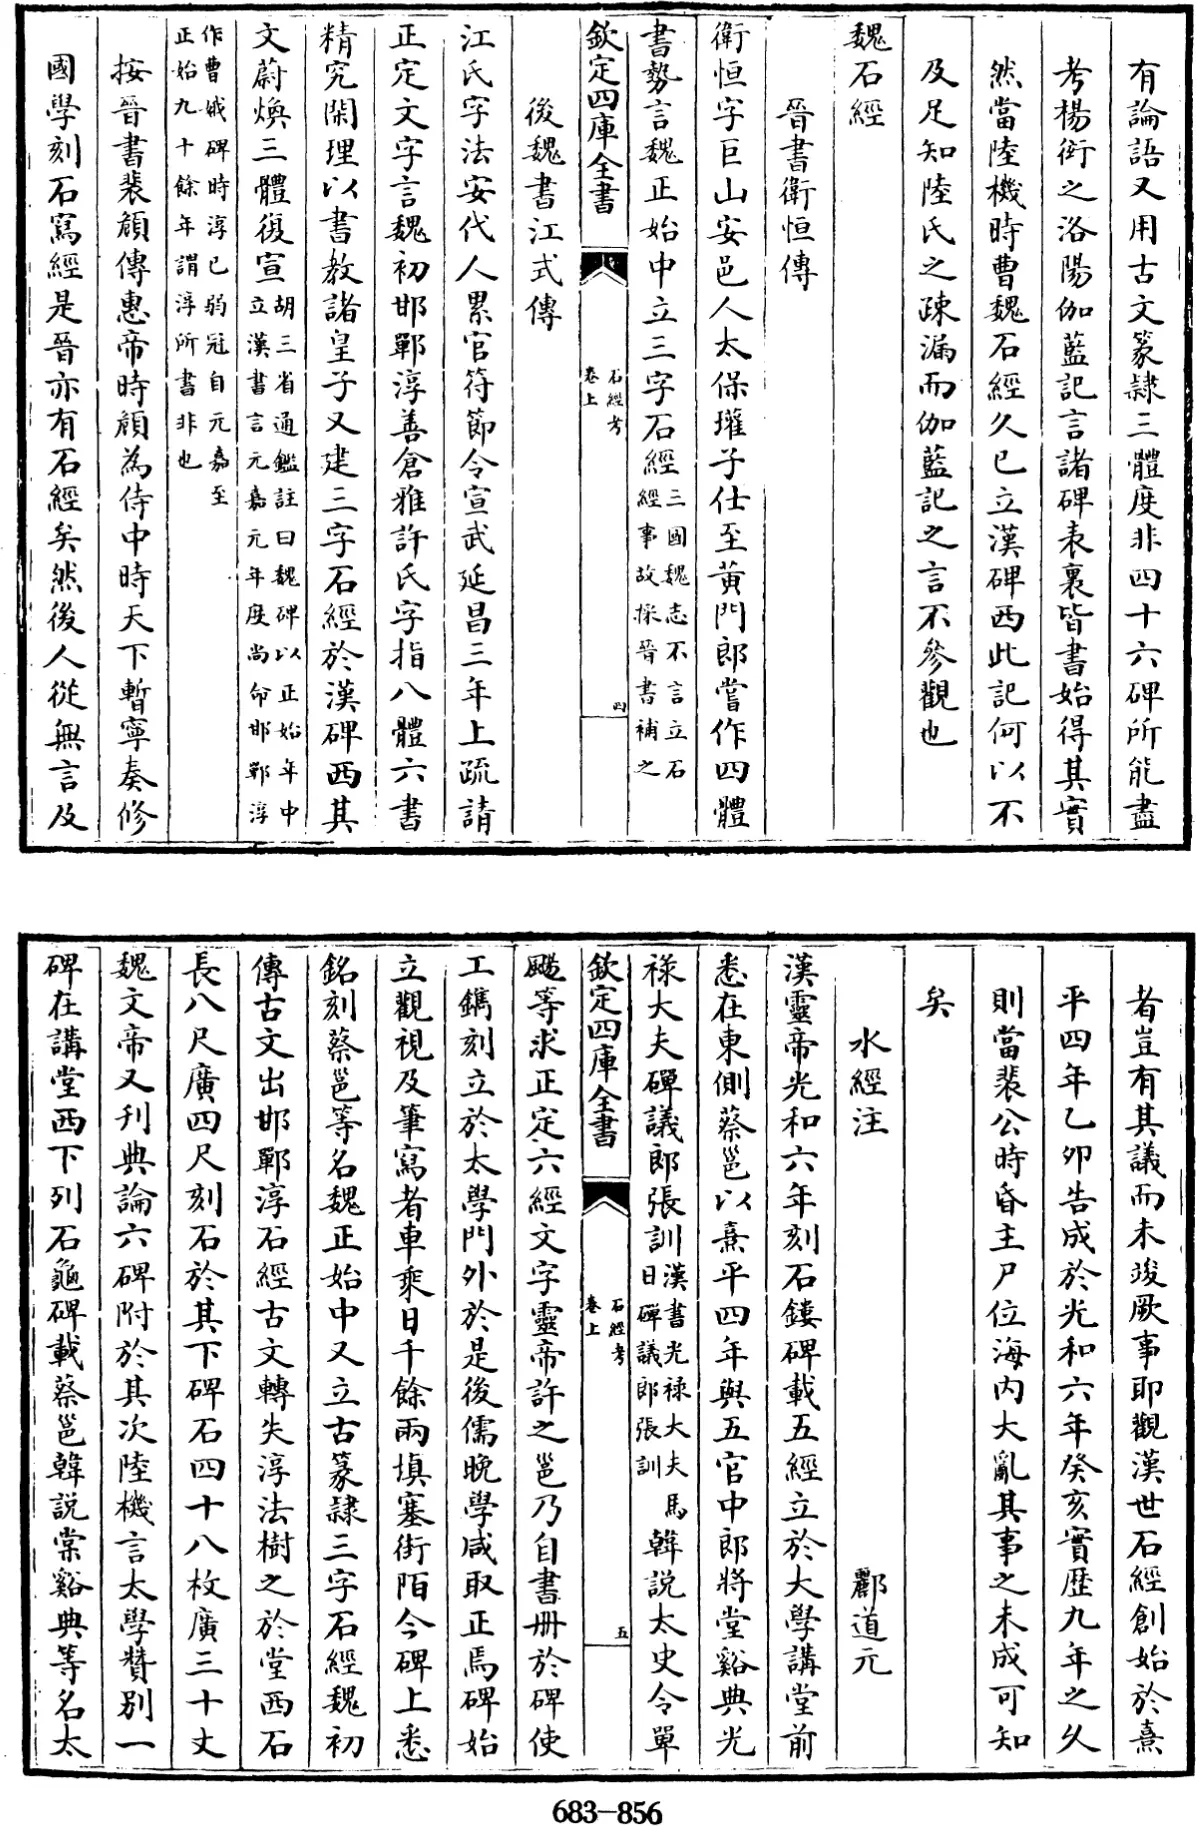 有論語又用古文篆隸三體度非四十六碑所能盡
考楊衒之洛陽伽藍記言諸碑表裏皆書始得其實
然當陸機時曹魏石經久已立漢碑西此記何以不
及足知陸氏之疎漏而伽藍記之言不參觀也
魏石經
晉書衛恒傳
衛恒字巨山安邑人太保瓘子仕至黃門郎嘗作四體
書勢言魏正始中立三字石經三國魏志不言立石
經事故採晉書補之
欽定四庫全書
石經考
卷上
四
後魏書江式傳
江氏字法安代人累官符節令宣武延昌三年上疏請
正定文字言魏初邯鄲淳善倉雅許氏字指八體六書
精究閑理以書教諸皇子又建三字石經於漢碑西其
文蔚煥三體復宣胡三省通鑑註曰魏碑以正始年中
立漢書言元嘉元年度尚命邯鄲淳
作曹娥碑時淳已弱冠自元嘉至
正始九十餘年謂淳所書非也
按晉書裴頠傳惠帝時頠為侍中時天下暫寧奏修
國學刻石寫經是晉亦有石經矣然後人從無言及
者豈有其議而未竣厥事耶觀漢世石經創始於熹
平四年乙卯告成於光和六年癸亥實歷九年之久
則當裴公時昏主尸位海內大亂其事之未成可知
矣
水經注 酈道元
漢靈帝光和六年刻石鏤碑載五經立於大學講堂前
悉在東側蔡邕以熹平四年與五官中郎將堂谿典光
祿大夫磾議郎張訓漢書光祿大夫馬
日磾議郎張訓
韓説太史令單
欽定四庫全書
石經考
卷上
五
颺等求正定六經文字靈帝許之邕乃自書冊於碑使
工鐫刻立於太學門外於是後儒晚學咸取正焉碑始
立觀視及筆寫者車乘日千餘兩填塞街陌今碑上悉
銘刻蔡邕等名魏正始中又立古篆隸三字石經魏初
傳古文出邯鄲淳石經古文轉失淳法樹之於堂西石
長八尺廣四尺刻石於其下碑石四十八枚廣三十丈
魏文帝又刊典論六碑附於其次陸機言太學贊別一
碑在講堂西下列石龜碑載蔡邕韓説棠谿典等名太
683-856